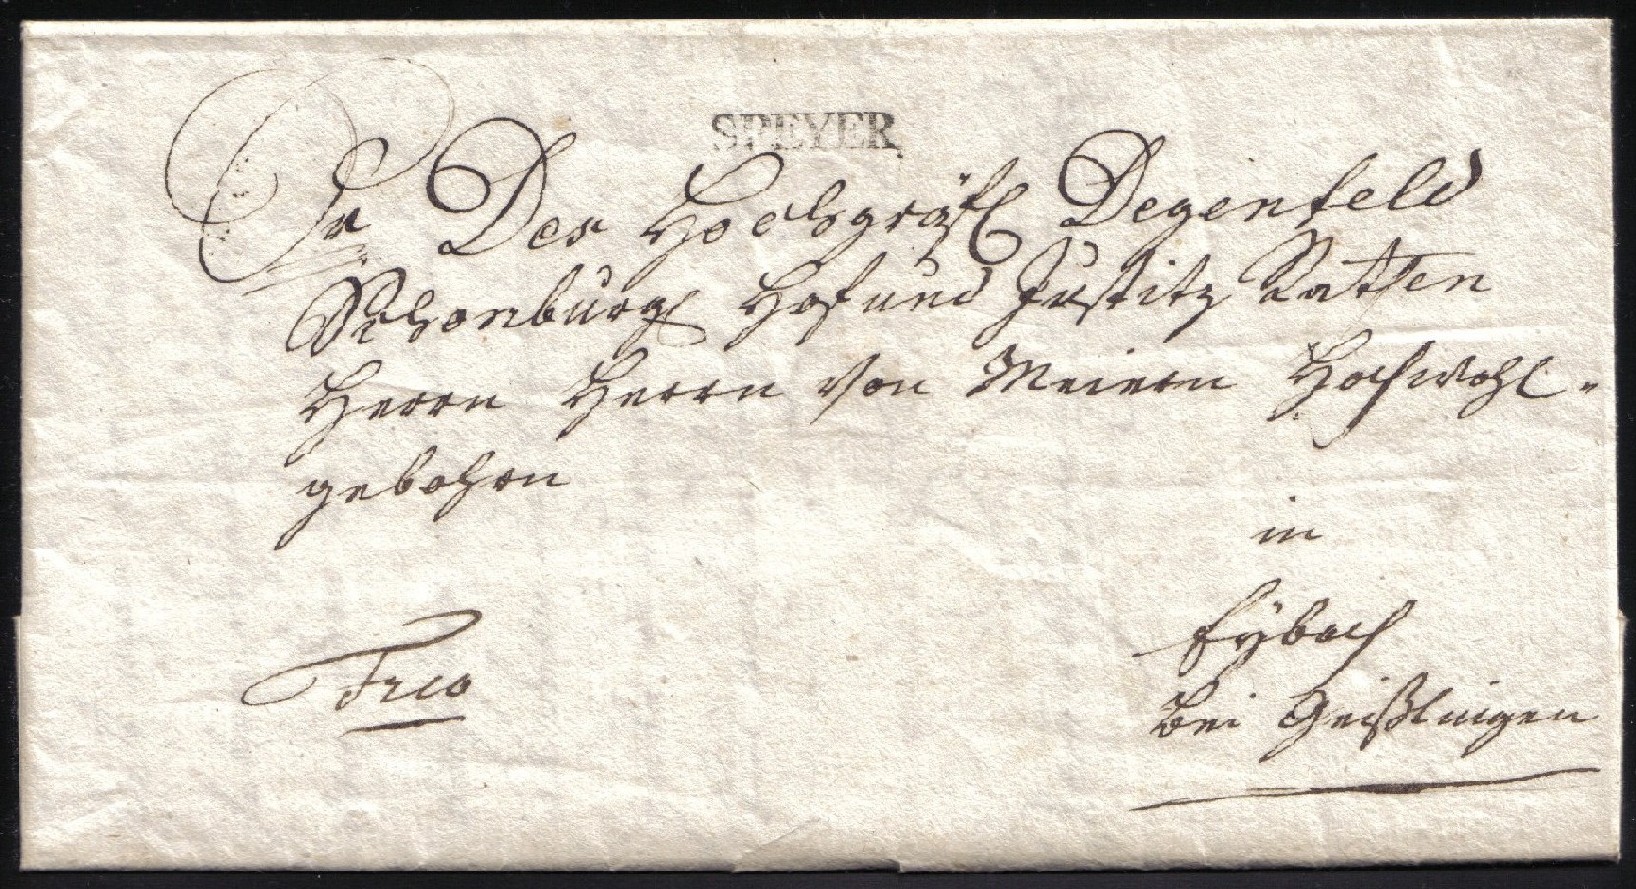 SPEYER
An Den Hochgräfl Degenfeld
Schonburg Hof und Justitz Rathen
Herrn Herrn von Meiern Hochwohl-
gebohrn
in
Eÿbach
bei Geißlingen
Frco